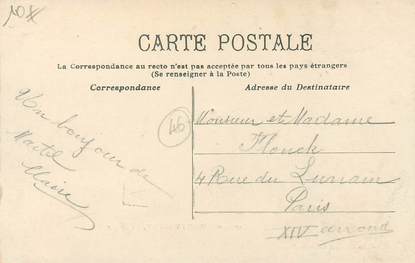 10X
CARTE POSTALE
La Correspondance au recto n'est pas acceptée par tous les pays étrangers
(Se renseigner à la Poste)
Correspondance
Adresse du Destinataire
Un bonjour de
Martel
Claire
46
Monsieur et Madame
4 Rue du Lunain
Paris
XIV arrond